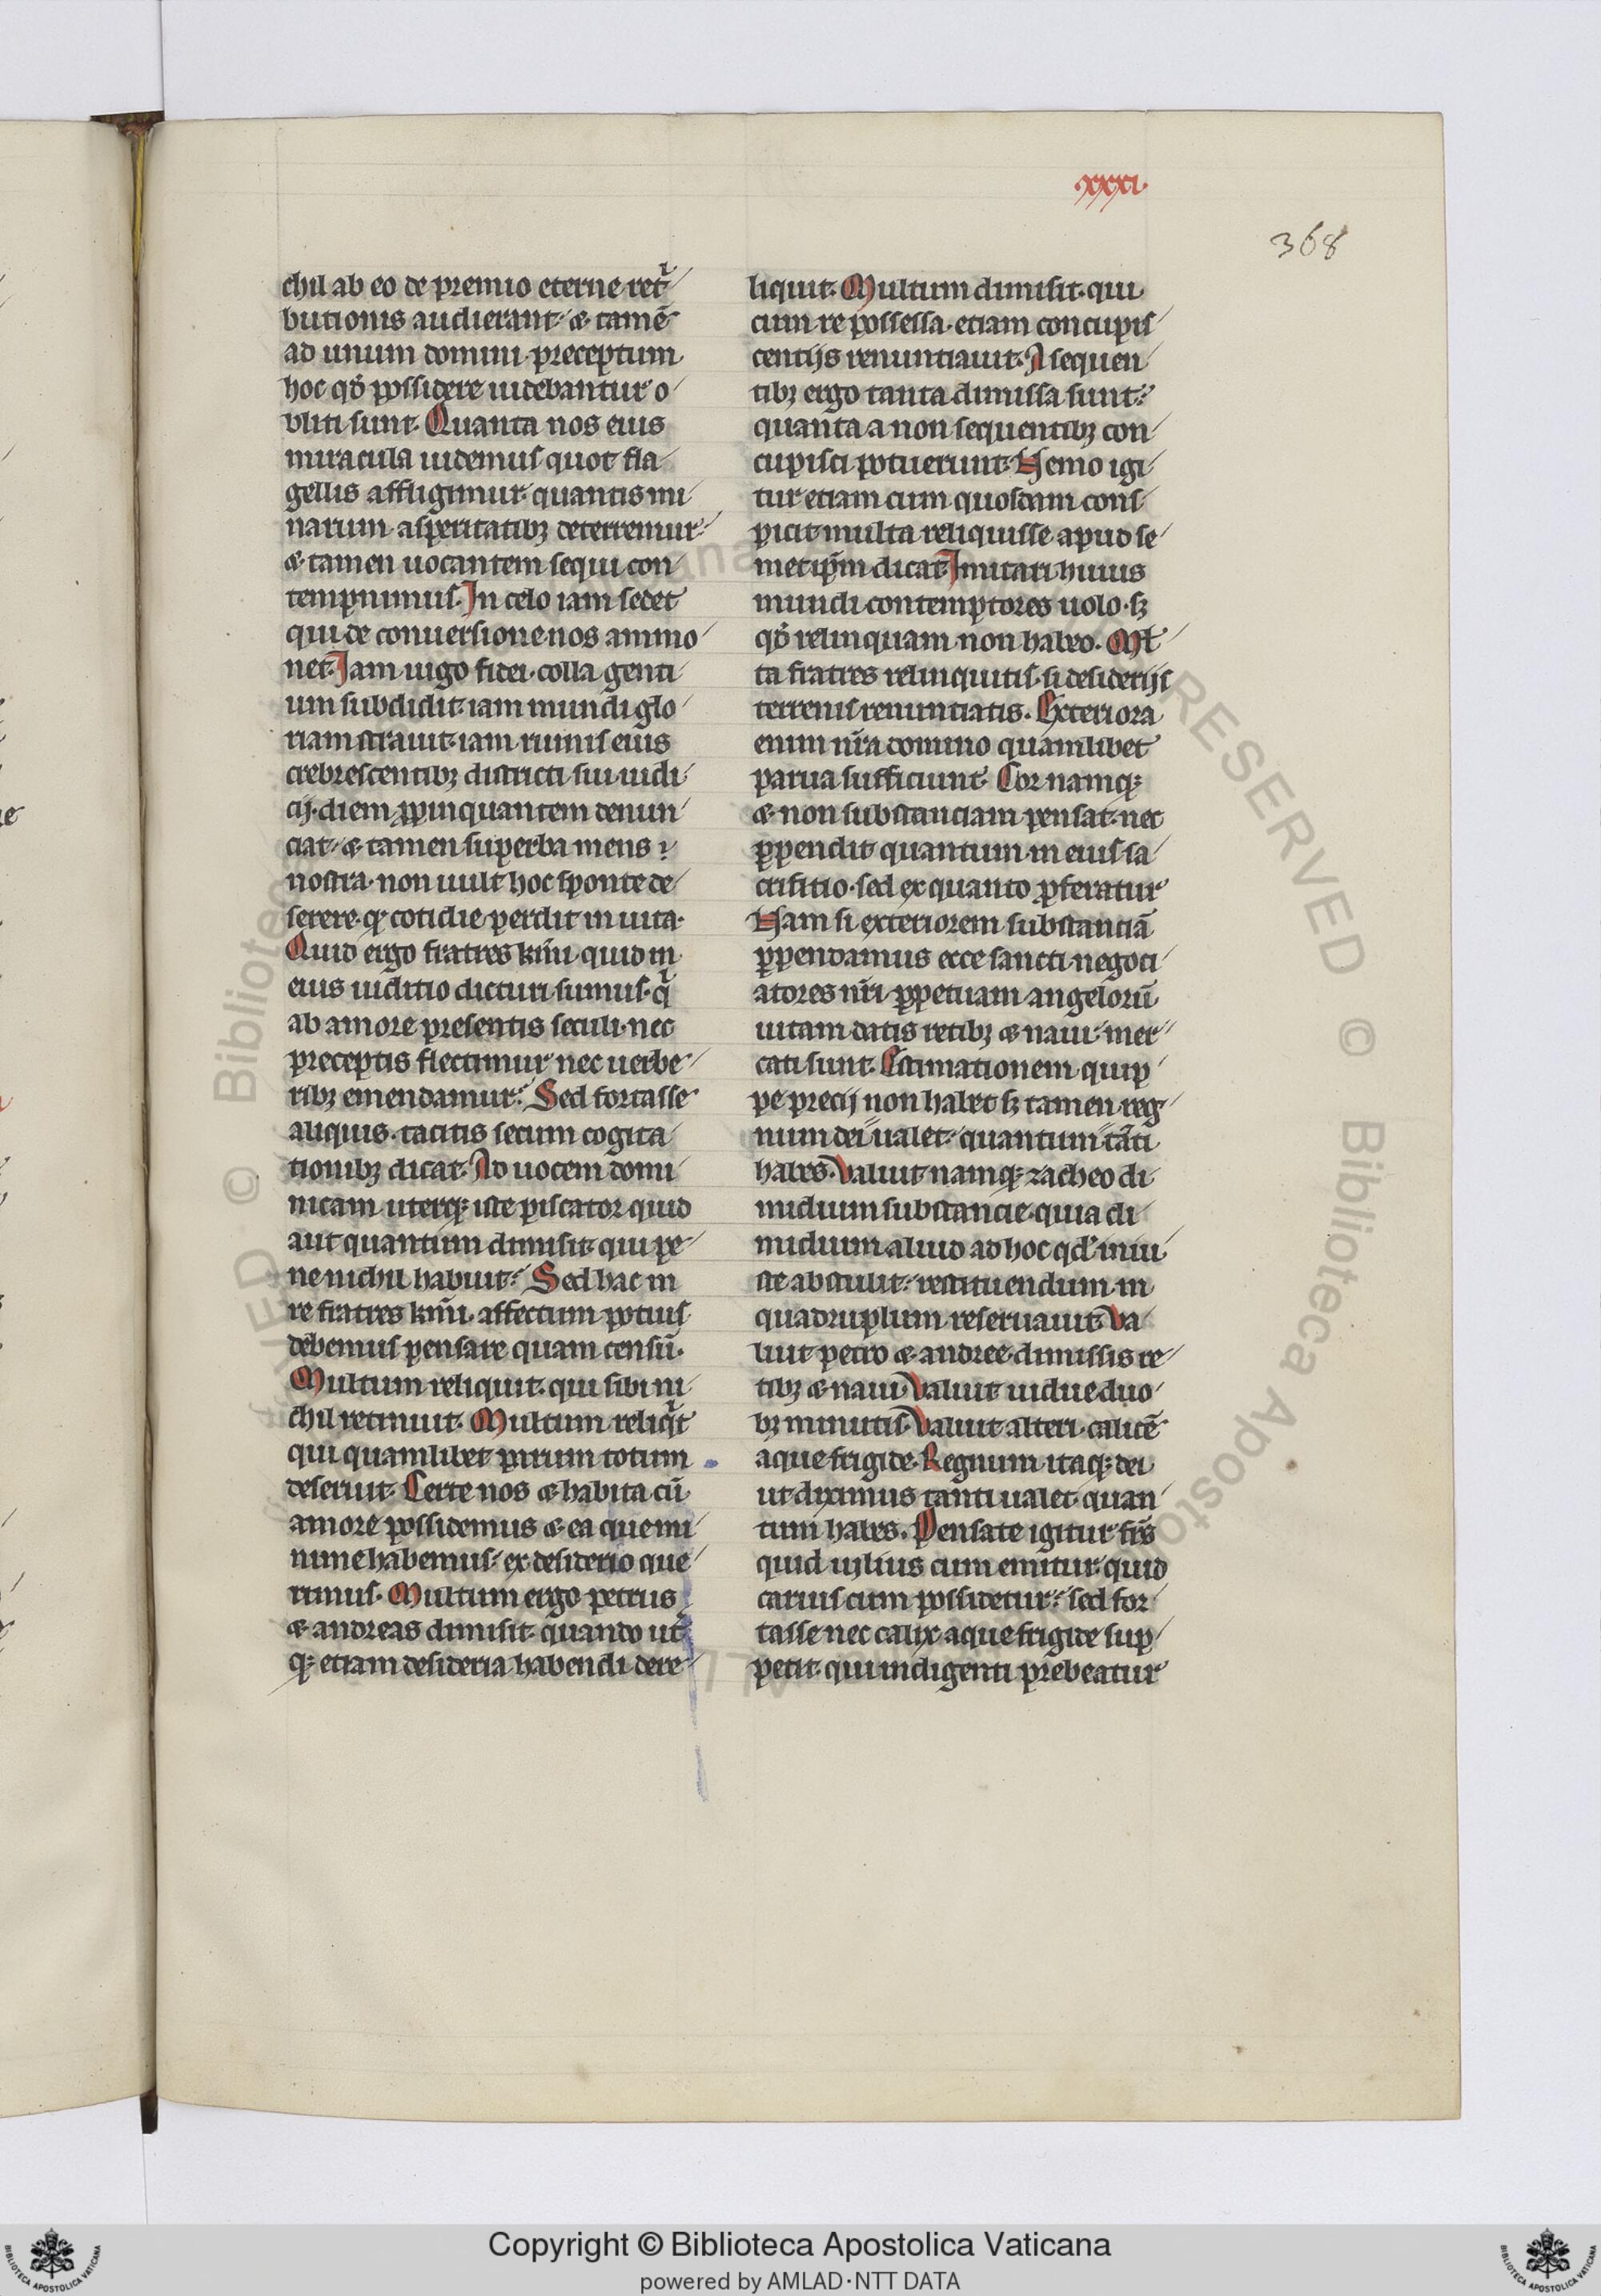 .xxxi.
368
chil ab eo de premio eterne retͥ
butionis audierant· ⁊ tamē
ad unum domini preceptum
hoc qđ possidere uidebantur o
bliti sunt. Quanta nos eius
miracula uidemus quot fla
gellis affligimur quantis mi
narum asperitatibꝫ deterremur
⁊ tamen uocantem sequi con
tempnimus. In celo iam sedet
qui de conuersione nos ammo
net. Iam iugo fidei colla genti
um subdidit iam mundi glo
riam strauit iam ruinis eius
crebrescentibꝫ districti sui iudi
cij diem ꝓpinquantem denun
ciat· ⁊ tamen superba mens
nostra non uult hoc sponte de
serere qđ cotidie perdit inuita.
Quid ergo fratres kmi̅ quid in
eius iuditio dicturi sumus qͥ
ab amore presentis seculi nec
preceptis flectimur nec uerbe
ribꝫ emendamur. Sed fortasse
aliquis tacitis secum cogita
tionibꝫ dicat. Ad uocem domi
nicam uterqꝫ iste piscator quid
aut quantum dimisit qui pe
ne nichil habuit. Sed hac in
re fratres kmi̅ affectum potius
debemus pensare quam censū.
Multum reliquit qui sibi ni
chil retinuit. Multum reliqͥt
qui quamlibet parum totum
deseruit. Certe nos ⁊ habita cū
amore possidemus ⁊ ea que mi
nime habemus ex desiderio que
rimus. Multum ergo petrus
⁊ andreas dimisit quando ut͛
qꝫ etiam desideria habendi dere
liquit. Multum dimisit qui
cum re possessa etiam concupis
centijs renuntiauit. A sequen
tibꝫ ergo tanta dimissa sunt
quanta a non sequentibꝫ con
cupisci potuerunt. Nemo igi
tur etiam cum quosdam cons
picit multa reliquisse apud se
metip̅m dicat. Imitari huius
mundi contemptores uolo sꝫ
qđ relinquam non habeo. Ml̅
ta fratres relinquitis si desiderijs
terrenis renuntiatis. Exteriora
enim nr̅a domino quamlibet
parua sufficiunt. Cor namqꝫ
⁊ non substanciam pensat nec
ꝑpendit quantum in eius sa
crifitio sed ex quanto ꝓferatur
Nam si exteriorem substantiā
ꝑpendamus ecce sancti negoci
atores nr̅i ꝑpetuam angelorū
uitam datis retibꝫ ⁊ naui mer
cati sunt. Estimationem quip
pe precij non habet sꝫ tamen reg
num dei ualet quantum tāti
habes. Valuit namqꝫ zacheo di
midium substancie quia di
midium aliud ad hoc qd̕ iniu
ste abstulit restituendum in
quadruplum reseruauit. Va
luit petro ⁊ andree dimissis re
tibꝫ ⁊ naui. Valuit uidue duo
bꝫ minutis. Valuit alteri calicē
aque frigide. Regnum itaqꝫ dei
ut diximus tanti ualet quan
tum habes. Pensate igitur fr̅s
quid uilius cum emitur quid
carius cum possidetur sed for
tasse nec calix aque frigide sup
petit qui indigenti prebeatur
Copyright © Biblioteca Apostolica Vaticana
powered by AMLAD·NTT DATA